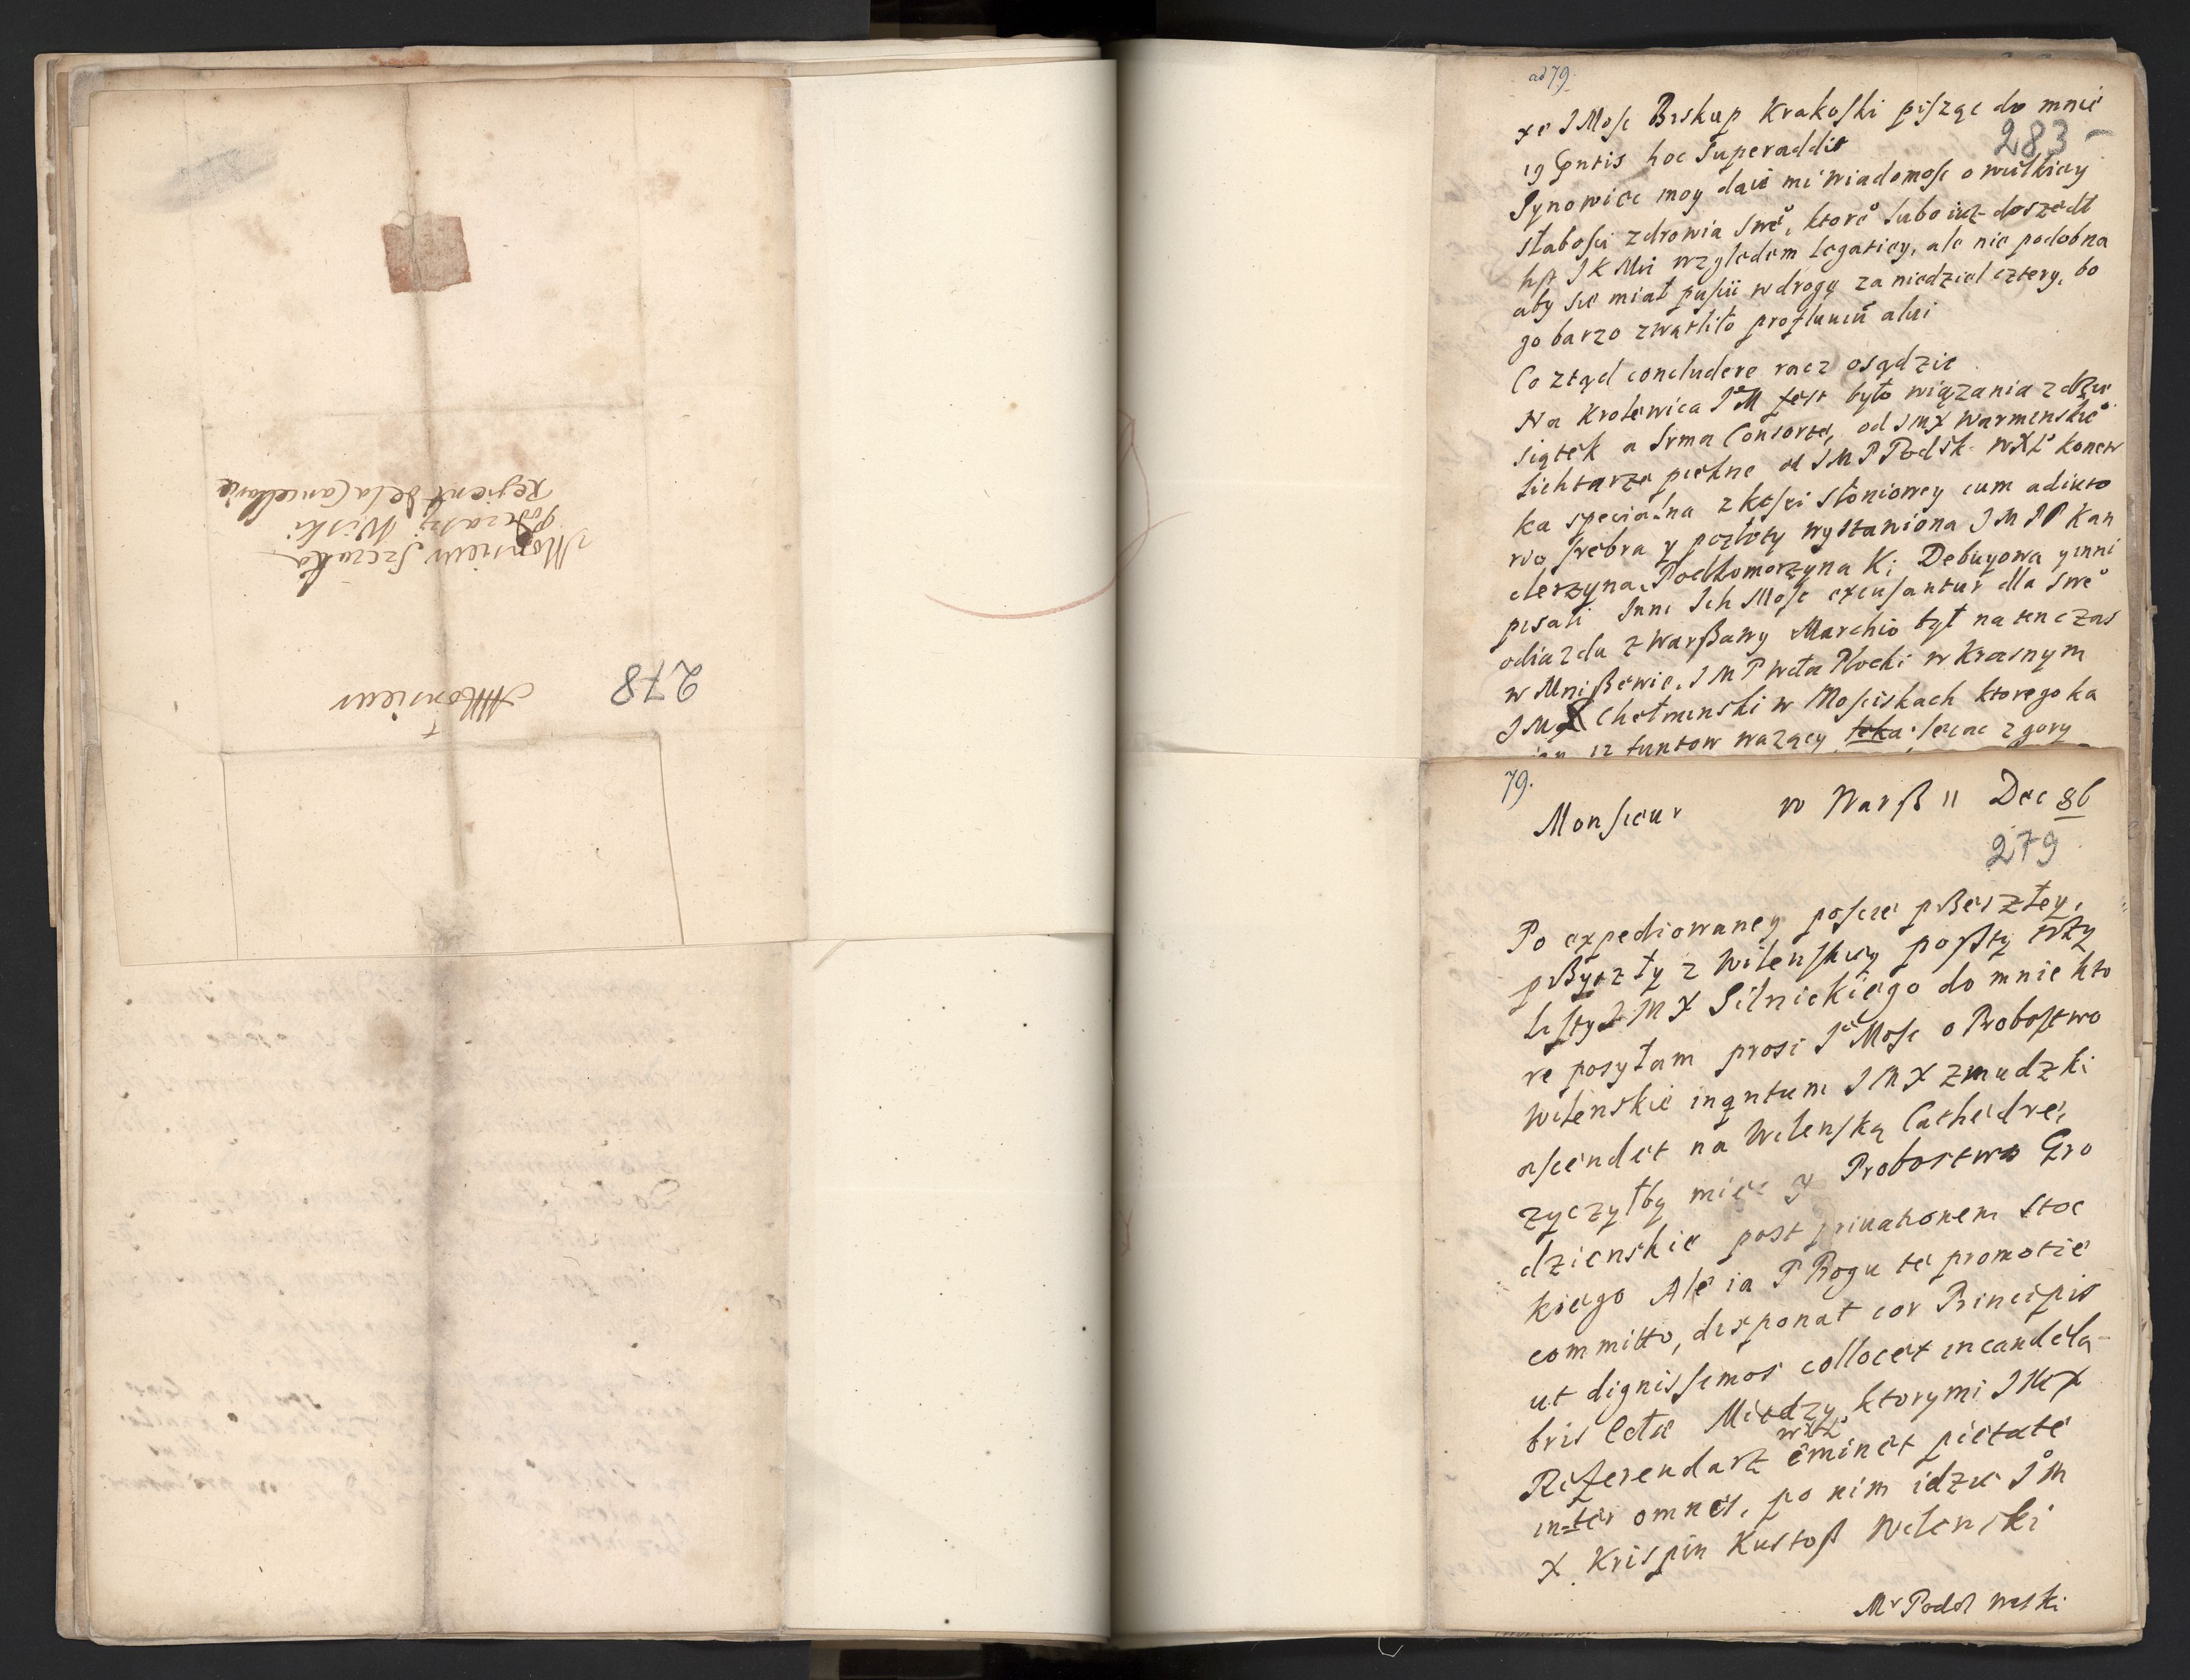 278
Monsieur
Monsieur Szczuka
podczaszy Wiski
Regient de la Cancellarie
ad 79.
283
xe JMosc Biskup Krakoski pisząc do mnie
19 Gntis hoc superaddit
Synowiec moy daie mi wiadomosc o wielkiey
słabosci zdrowia sweo, ktoreo lubo iuz doszedł
list JKMci względem legatiey, ale nie podobna
aby sie miał puscic w drogę za niedziel cztery, bo
go barzo zwątliło profluuiu alui
Co ztąd concludere racz osądzic
Na Krolewica JeM fest było wiązania z
siątek a Srma Consorte, od JMX Warminskieo
lichtarze piekne od JMP Podsk. WXLo konew
ka specialna z kosci słoniowey cum adiuto
rio srebra y pozłoty wystawiona JMPP Kan
clerzyna, Podkomorzyna K; Debuyowa y inni
pisali Inni Ich Mosc excusantur dla sweo
odiazdu z Warßawy Marchio był na ten czas
w Mnißewie, JMP Wda Płocki w Krasnym
JMX Chełminski w Mosciskach ktorego ka
12 funtow wazący lecąc z gory
79.
Monsieur w Warß 11 Dec 86
279
Po expediowaney poscie pßeszłey,
pßyszły z Wilenskiey poßty
listy JMX Silnickiego do mnie kto
re posyłam prosi JeMosc o Probostwo
Wilenskie inqntum JMX Zmudzki
ascendet na Wilenską Cathedre,
zyczyłby miec y Probostwo Gro
dzienskie post priuationem Stoc
kiego Ale ia P Bogu te promotie
committo, disponat cor Principis
ut dignissimos collocet in candela
bris Między ktorymi JMX
Referendarz WXLo eminet pietate
inter omnes, po nim idzie JeM
X. Krispin Kustoß Wilenski
Mr Podol waski